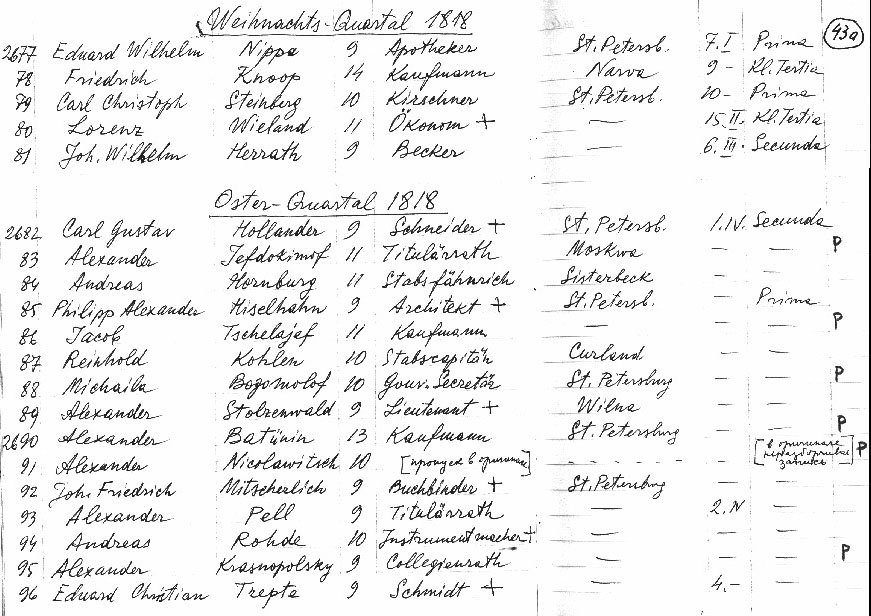 Weihnachts-Quartal 1818
43a
2677 Eduard Wilhelm Nippa 9 Apotheker St. Petersb. 7. I Prima
78 Friedrich Knoop 14 Kaufmann Narva 9 - Kl. Tertia
79 Carl Christoph Steinberg 10 Kirschner St. Petersb. 10 - Prima
80 Lorenz Wieland 11 Ökonom + — 15. II. Kl. Tertia
81 Joh. Wilhelm Herrath 9 Becker — 6. III. Secunda
Oster-Quartal 1818
2682 Carl Gustav Hollander 9 Schneider + St. Petersb. 1. IV. Secunda
83 Alexander Jefdokimof 11 Titulärrath Moskwa — — P
84 Andreas Hornburg 11 Stabsfähnrich Sisterbeck — —
85 Philipp Alexander Hiselhahn 9 Architekt + St. Petersb. — Prima
86 Jacob Tschelajef 11 Kaufmann — — — P
87 Reinhold Kohlen 10 Stabscapitän Curland — —
88 Michaila Bogomolof 10 Gouv. Secretär St. Petersburg — — P
89 Alexander Stolzenwald 9 Lieutenant + Wilna — —
2690 Alexander Batünin 13 Kaufmann St. Petersburg — — P
91 Alexander Nicolawitsch 10 [пропуск в оригинале] - - - - - [в оригинале неразборчиво запись] P
92 Joh. Friedrich Mitscherlich 9 Buchbinder + St. Petersburg — —
93 Alexander Pell 9 Titulärrath — 2. IV —
94 Andreas Rohde 10 Instrumentmacher + — — —
95 Alexander Krasnopolsky 9 Collegienrath — — — P
96 Eduard Christian Trepte 9 Schmidt + — 4. - —